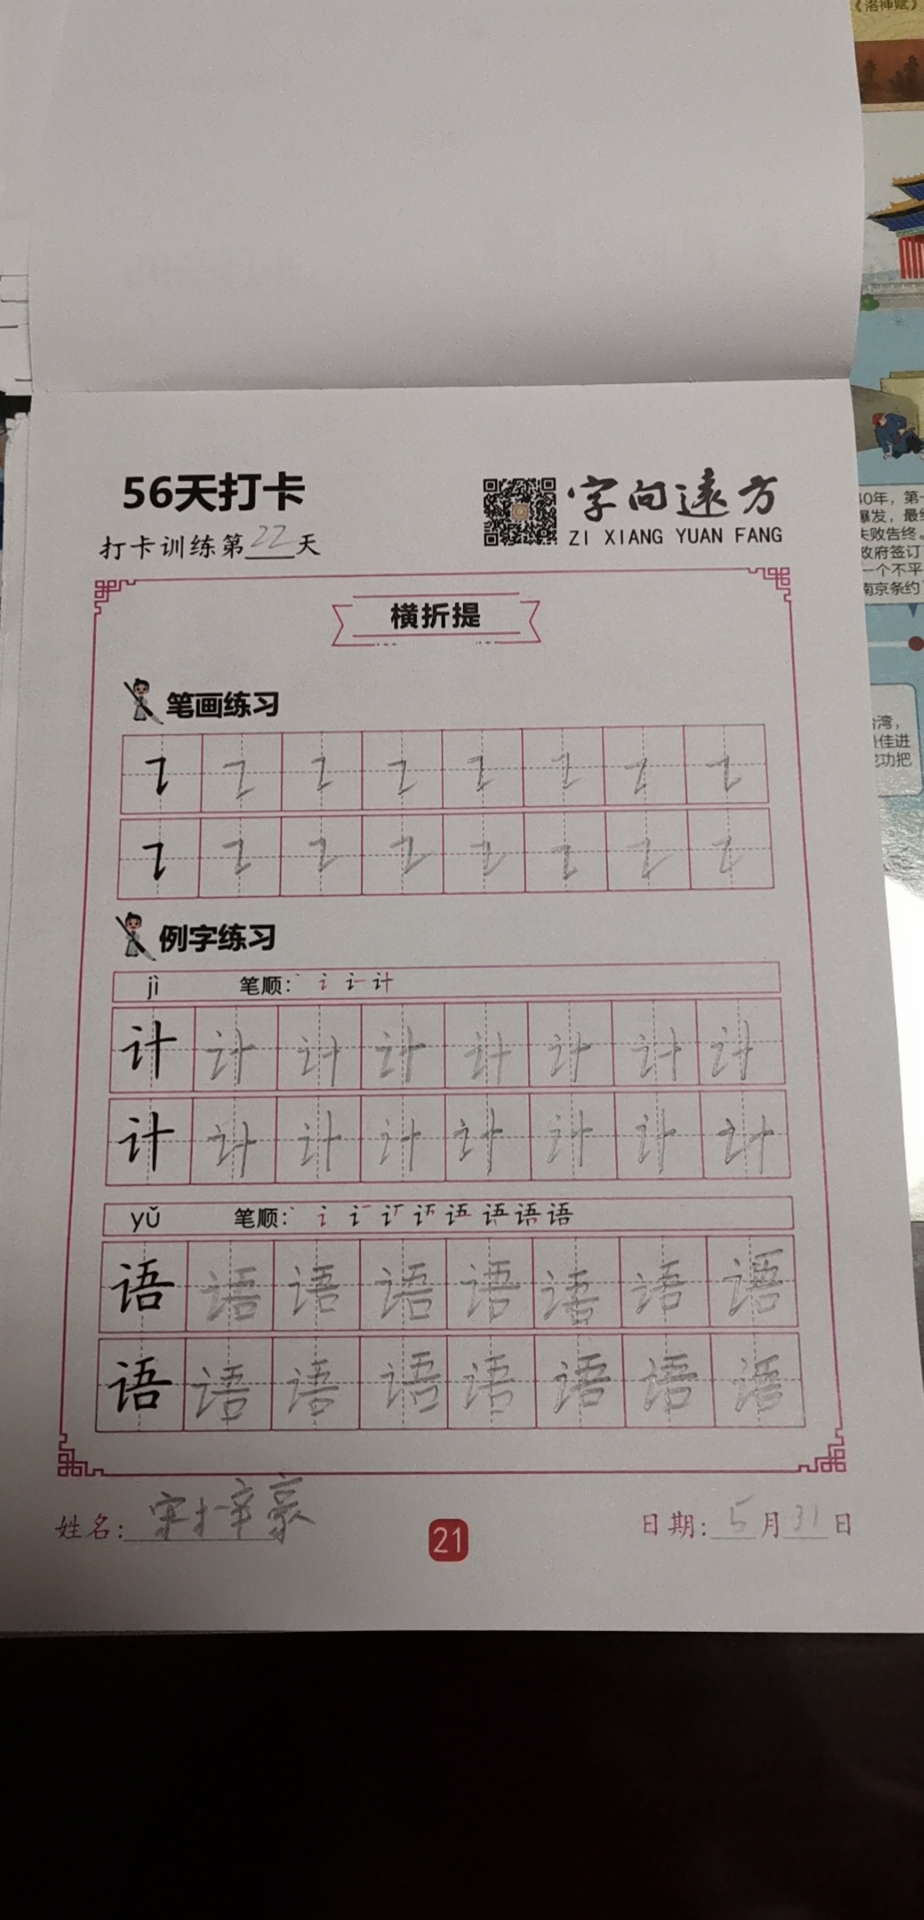 《洛神赋》
56天打卡
打卡训练第22天
字向远方
ZI XIANG YUAN FANG
40年，第一
爆发，最终
失败告终。
政府签订
一个不平
南京条约
横折提
笔画练习
台湾，
最佳进
成功把
例字练习
jì 笔顺： 计
计 计 计 计 计 计 计 计
计 计 计 计 计 计 计 计
yǔ 笔顺： 语 语 语
语 语 语 语 语 语 语 语
语 语 语 语 语 语 语 语
姓名：
21
日期：5月31日